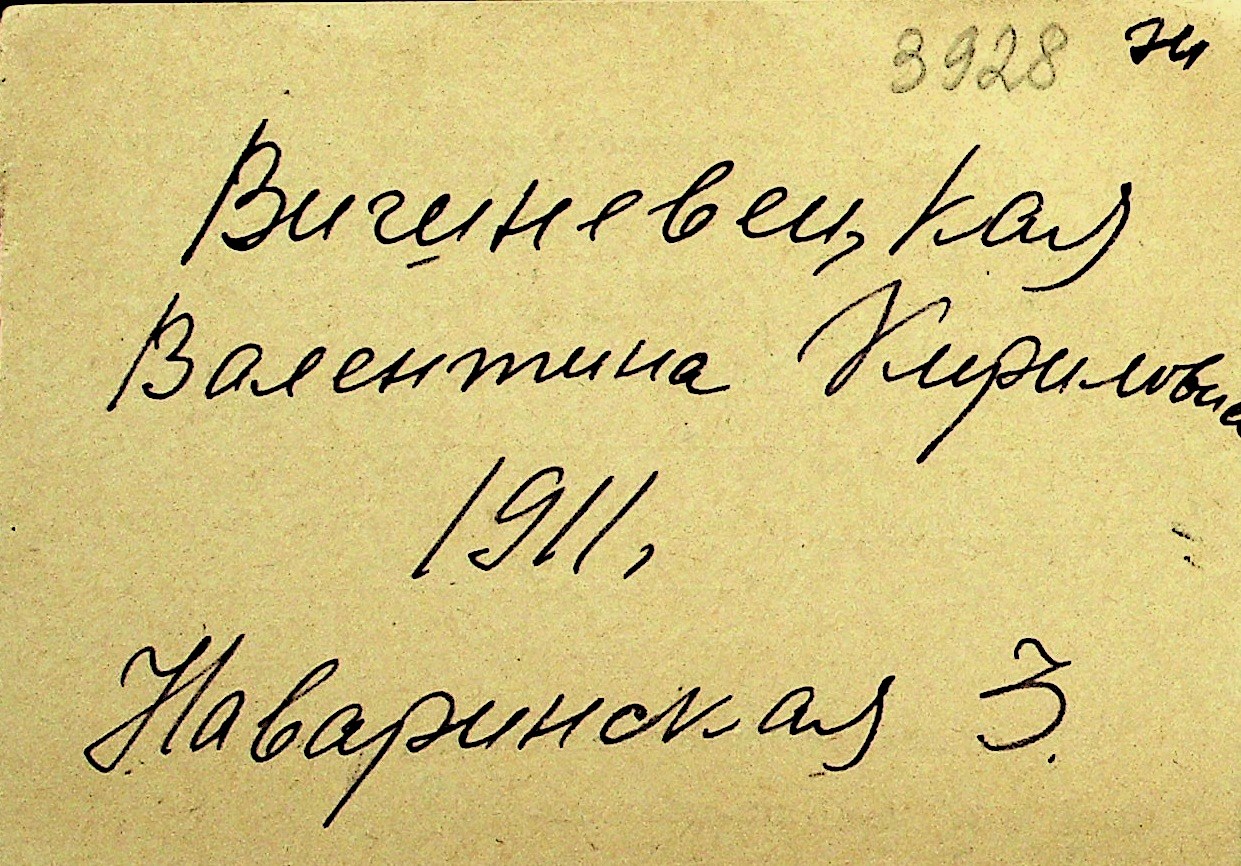 3928
Вишневецкая
Валентина Кириловна
1911,
Наваринская 3.